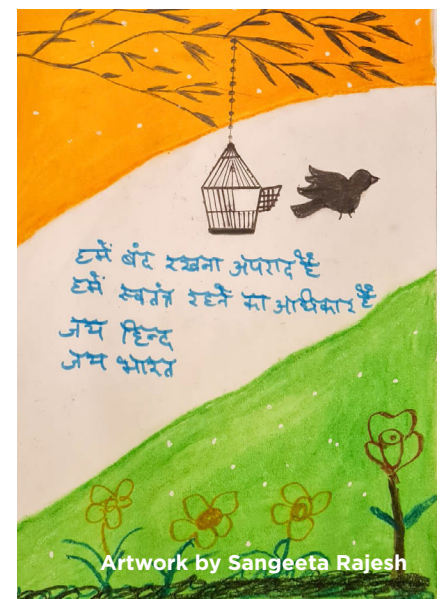 हमें बंद रखना अपराद है
हमें स्वतंत्र रहने का अधिकार है
जय हिन्द
जय भारत
Artwork by Sangeeta Rajesh